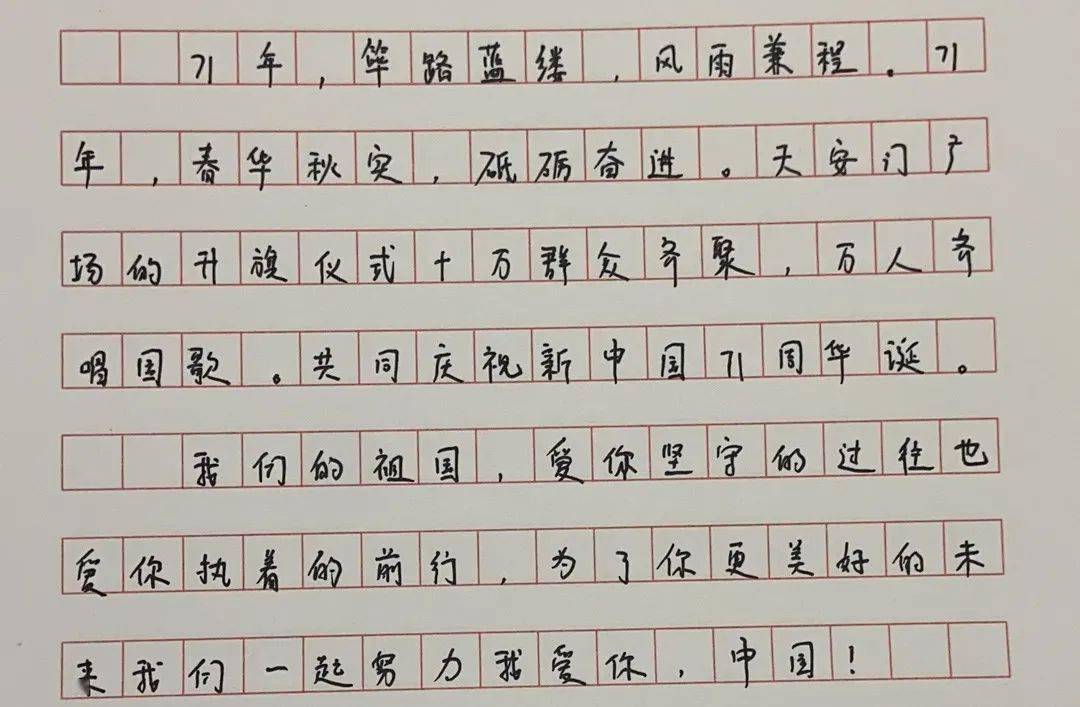 71年，筚路蓝缕，风雨兼程。71
年，春华秋实，砥砺奋进。天安门广
场的升旗仪式十万群众齐聚，万人齐
唱国歌。共同庆祝新中国71周华诞。
我们的祖国，爱你坚守的过往也
爱你执着的前行，为了你更美好的未
来我们一起努力我爱你，中国！